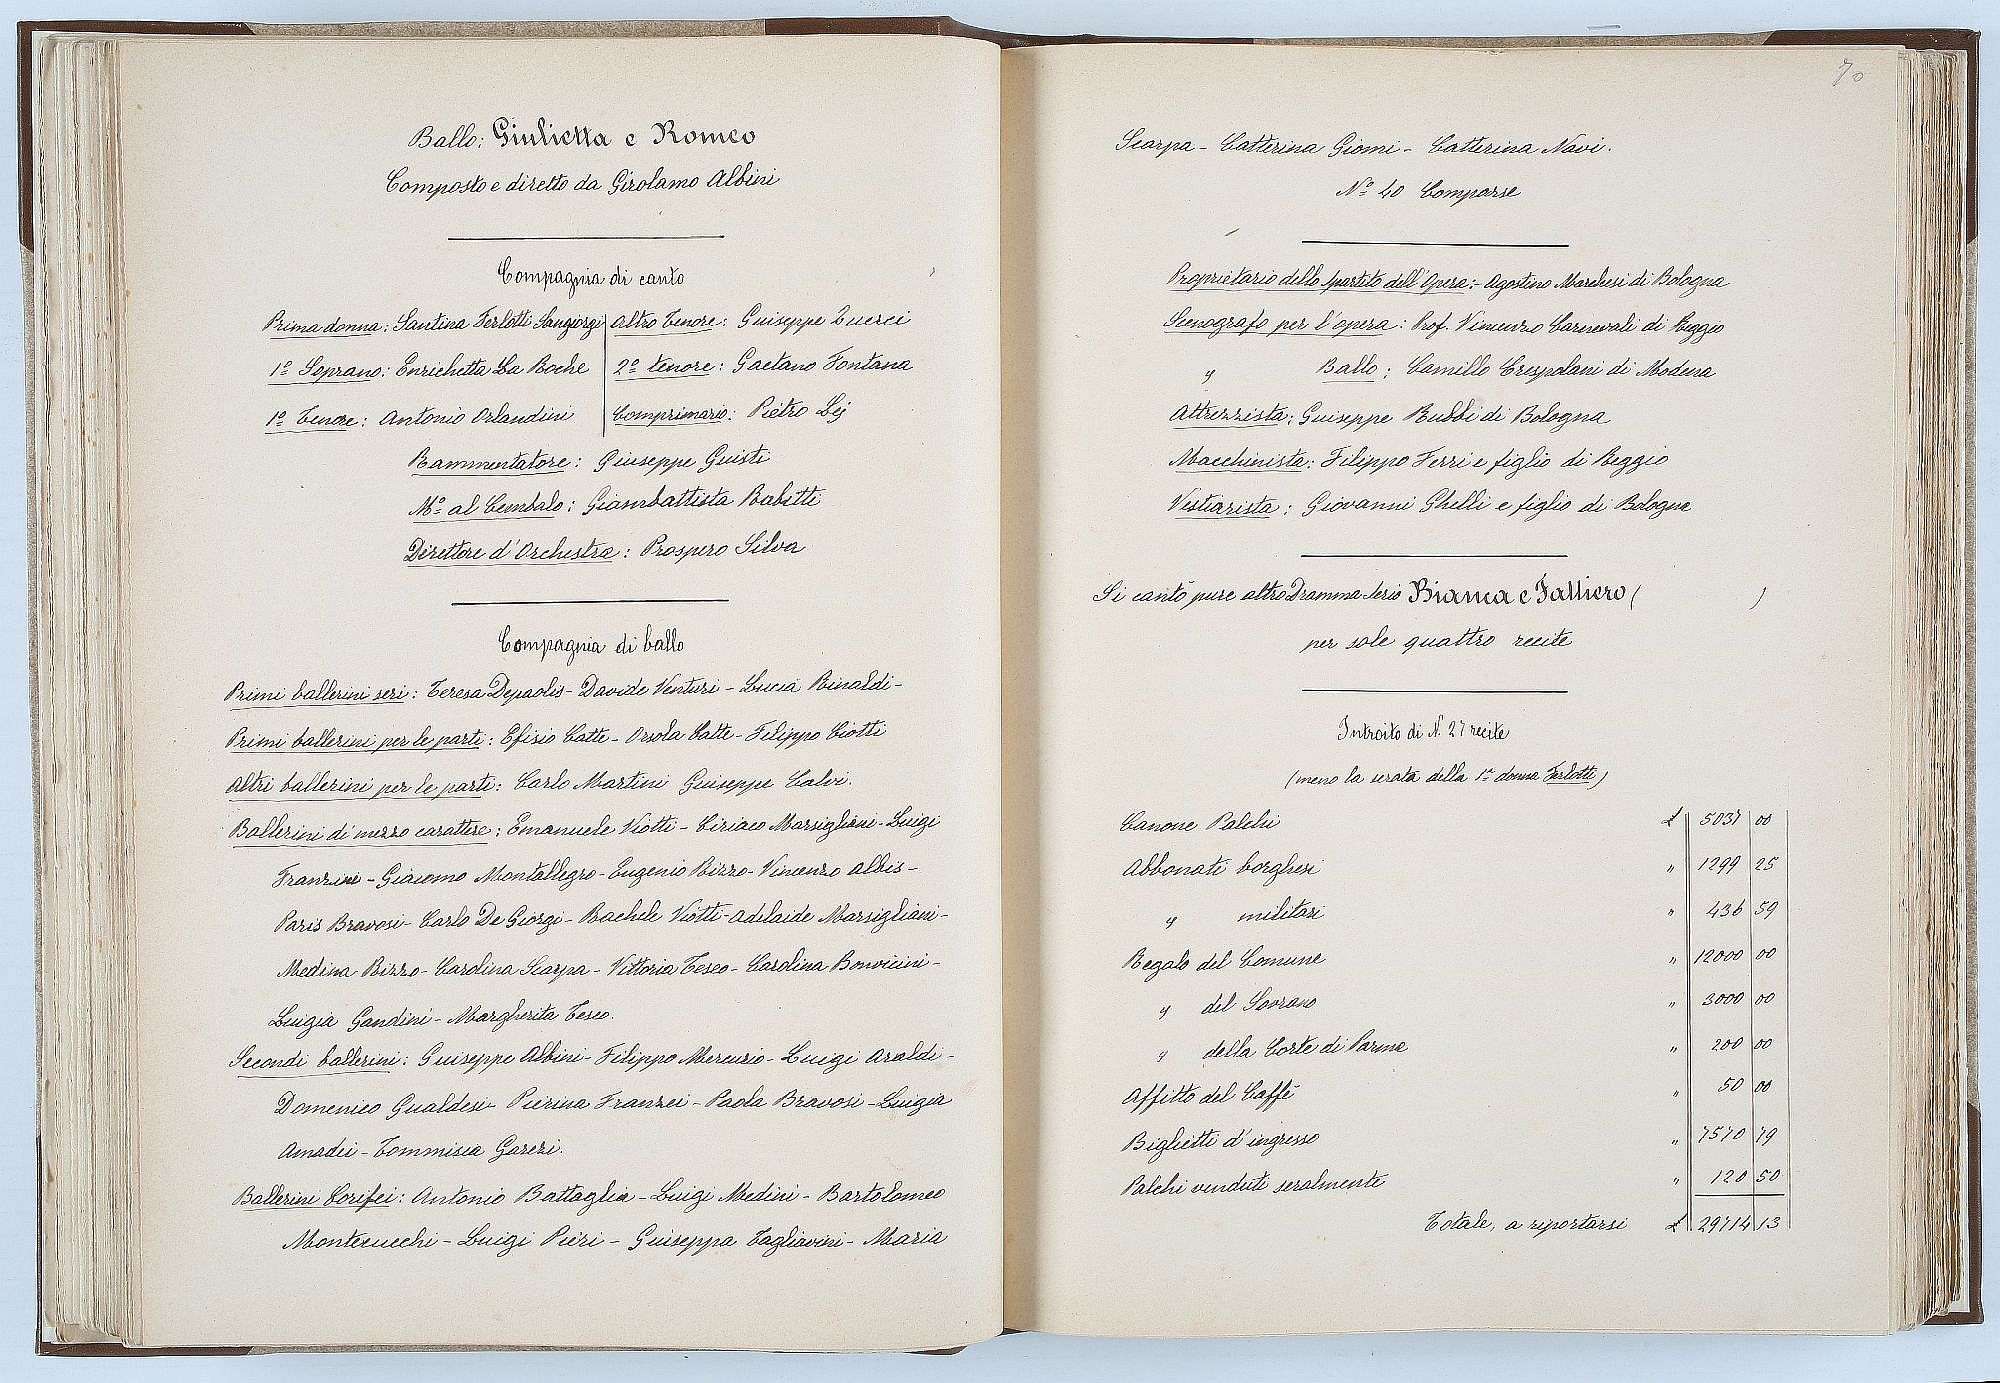 Ballo: Giulietta e Romeo
Composto e diretto da Girolamo Albini
Compagnia di canto
Prima donna: Santina Ferlotti Sangiorgi
1º Soprano: Enrichetta La Roche
1º Tenore: Antonio Orlandini
Altro Tenore: Guiseppe Zucci
2º tenore: Gaetano Fontana
Comprimario: Pietro Lej
Rammentatore: Giuseppe Guisti
Mº al Cembalo: Giambattista Rabitti
Direttore d'Orchestra: Prospero Silva
Compagnia di ballo
Primi ballerini seri: Teresa Depaolis - Davide Venturi - Lucia Rinaldi -
Primi ballerini per le parti: Efisio Catte - Orsola Catte - Filippo Ciotti
Altri ballerini per le parti: Carlo Martini Guiseppe Calvi.
Ballerini di mezzo carattere: Emanuele Viotti - Ciriaco Marsigliani - Luigi
Franzini - Giacomo Montallegro - Eugenio Bizzo - Vincenzo Albis -
Paris Bravosi - Carlo De Giorgi - Rachele Viotti - Adelaide Marsigliani -
Medina Rizzo - Carolina Scarpa - Vittoria Teseo - Carolina Bonvicini -
Luigia Gandini - Margherita Teseo.
Secondi ballerini: Guiseppe Albini - Filippo Mercurio - Luigi Araldi -
Domenico Gualdesi - Pierina Franzei - Paola Bravosi - Luigia
Amadei - Tommisia Garezi.
Ballerini Corifei: Antonio Battaglia - Luigi Medini - Bartolomeo
Montecucchi - Luigi Pieri - Guiseppa Tagliavini - Maria
70
Scarpa - Catterina Giomi - Catterina Navi.
Nº 40 Comparse
Proprietario dello spartito dell'Opera: - Agostino Marchesi di Bologna
Scenografo per l'opera: Prof. Vincenzo Carnevali di Reggio
" Ballo: Camillo Crespolani di Modena
Attrezzista: Guiseppe Rubbi di Bologna
Macchinista: Filippo Ferri e figlio di Reggio
Vestiarista: Giovanni Ghelli e figlio di Bologna
Si cantò pure altro Dramma Serio Bianca e Falliero ( )
per sole quattro recite
Introito di N. 27 recite
(meno la serata della 1ª donna Ferlotti)
Canone Palchi £ 5037 00
Abbonati borghesi " 1299 25
" militari " 436 59
Regalo del Comune " 12000 00
" del Sovrano " 3000 00
" della Corte di Parma " 200 00
Affitto del Caffè " 50 00
Biglietti d'ingresso " 7570 79
Palchi venduti seralmente " 120 50
Totale, a riportarsi £ 29714 13